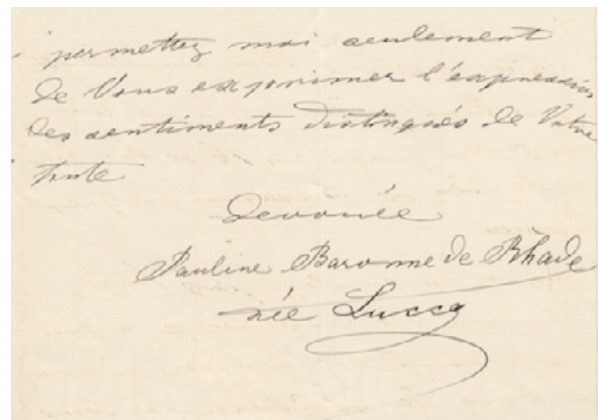 permettez moi seulement
de Vous exprimer l'expression
des sentiments distingués de Votre
toute
Devouée
Pauline Baronne de Rhade
née Lucca